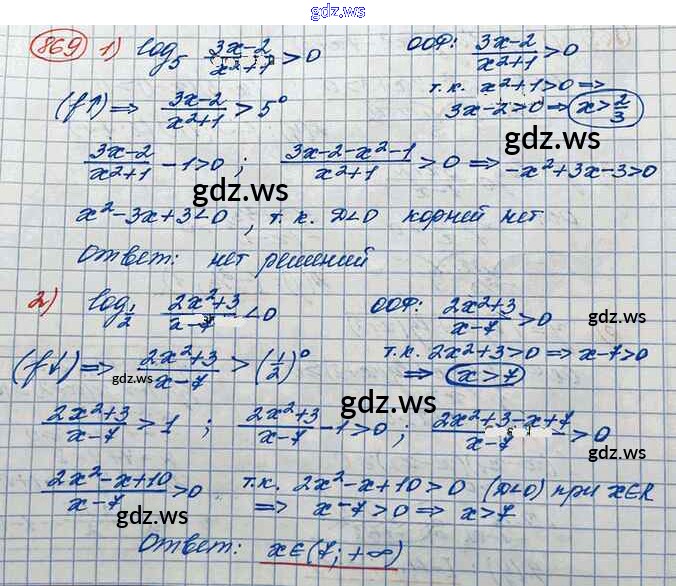 gdz.ws
869 1) log₅ (3x-2)/(x²+1) > 0 ООФ: (3x-2)/(x²+1) > 0
т.к. x²+1>0 =>
(f↑) => (3x-2)/(x²+1) > 5⁰ 3x-2>0 => x>2/3
gdz.ws
(3x-2)/(x²+1) - 1>0 ; (3x-2-x²-1)/(x²+1) > 0 => -x²+3x-3>0
gdz.ws
x²-3x+3<0 , т.к. D<0 корней нет
Ответ: нет решений
gdz.ws
2) log_{1/2} (2x²+3)/(x-7) < 0 ООФ: (2x²+3)/(x-7) > 0
т.к. 2x²+3>0 => x-7>0
(f↓) => (2x²+3)/(x-7) > (1/2)⁰ => x>7
gdz.ws gdz.ws
(2x²+3)/(x-7) > 1 ; (2x²+3)/(x-7) - 1>0 ; (2x²+3-x+7)/(x-7) > 0
gdz.ws
(2x²-x+10)/(x-7) > 0 т.к. 2x²-x+10>0 (D<0) при x∈R
=> x-7>0 => x>7
gdz.ws
Ответ: x∈(7; +∞)
gdz.ws
gdz.ws